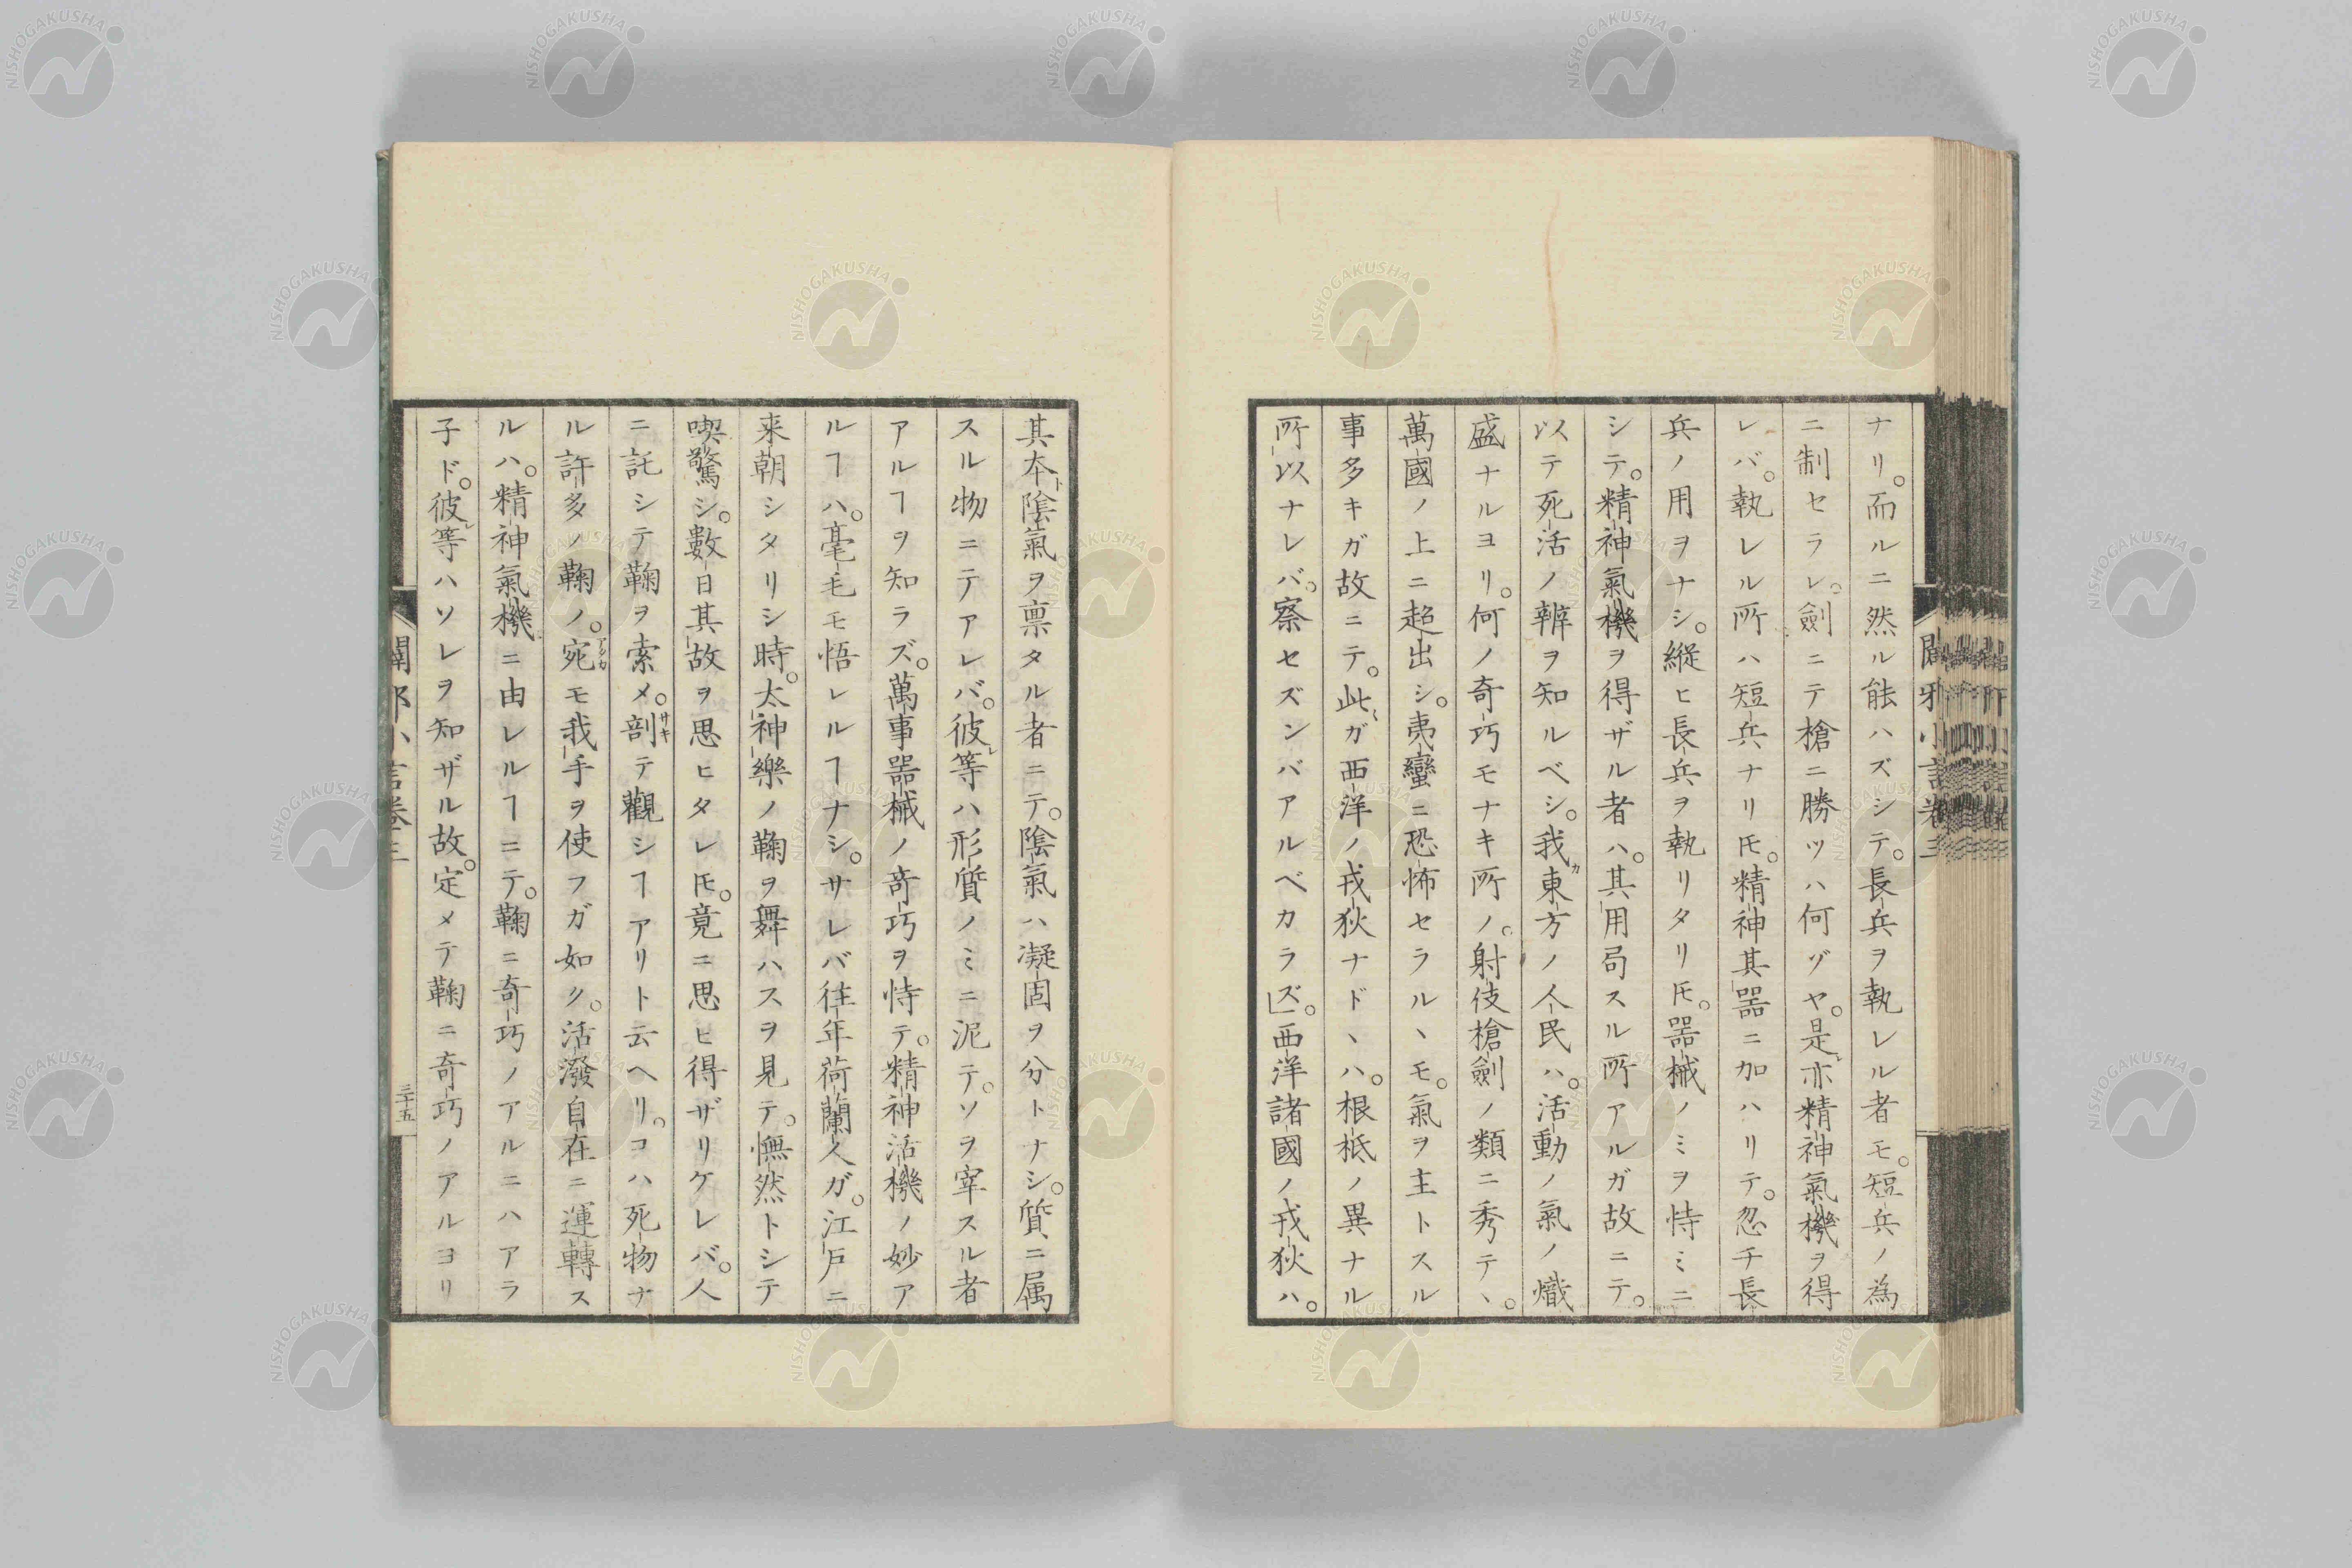 ナリ。而ルニ然ル能ハズシテ。長兵ヲ執レル者モ。短兵ノ為
ニ制セラレ。劍ニテ槍ニ勝ツハ何ゾヤ。是レ亦精神氣機ヲ得
レバ。執レル所ハ短兵ナリ𪜈。精神其器ニ加ハリテ。忽チ長
兵ノ用ヲナシ。縱ヒ長兵ヲ執リタリ𪜈。器械ノミヲ恃ミニ
シテ。精神氣機ヲ得ザル者ハ。其用局スル所アルガ故ニテ。
以テ死活ノ辨ヲ知ルベシ。我カ東方ノ人民ハ。活動ノ氣ノ熾
盛ナルヨリ。何ノ奇巧モナキ所ノ。射伎槍劍ノ類ニ秀テヽ。
萬國ノ上ニ超出シ。夷蠻ニ恐怖セラルヽモ。氣ヲ主トスル
事多キガ故ニテ。此ガ西洋ノ戎狄ナドヽハ。根柢ノ異ナル
所以ナレバ。察セズンバアルベカラズ」。西洋諸國ノ戎狄ハ。
闢邪小言卷三
其本陰氣ヲ禀タル者ニテ。陰氣ハ凝固ヲ分トナシ。質ニ属
スル物ニテアレバ。彼レ等ハ形質ノミニ泥テ。ソヲ宰スル者
アルヿヲ知ラズ。萬事器械ノ奇巧ヲ恃テ。精神活機ノ妙ア
ルヿハ。毫毛モ悟レルヿナシ。サレバ往年荷蘭人ガ。江戸ニ
来朝シタリシ時。太神樂ノ鞠ヲ舞ハスヲ見テ。憮然トシテ
喫驚シ。數日其故ヲ思ヒタレ𪜈。竟ニ思ヒ得ザリケレバ。人
ニ託シテ鞠ヲ索メ。剖サキテ觀シヿアリト云ヘリ。コハ死物ナ
ル許多ノ鞠ノ。宛アタカモ我手ヲ使フガ如ク。活潑自在ニ運轉ス
ルハ。精神氣機ニ由レルヿニテ。鞠ニ奇巧ノアルニハアラ
子ド。彼レ等ハソレヲ知ザル故。定メテ鞠ニ奇巧ノアルヨリ
闢邪小言卷三
三十五
NISHOGAKUSHA